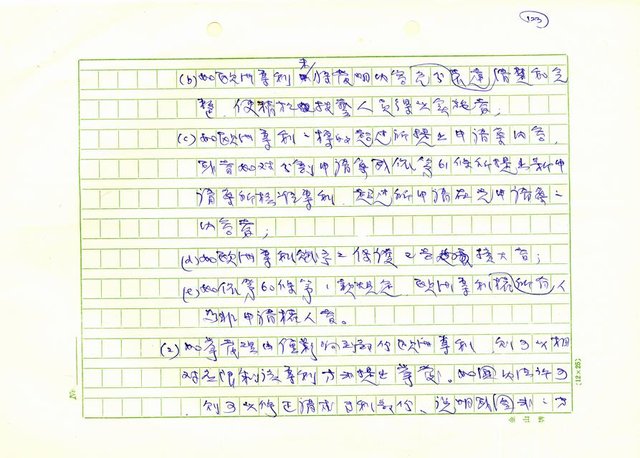 123
(b)如歐洲專利未將發明內容充分表達清楚和完
整,使精於此技藝人員得以實施者,
(c)如歐洲專利之標的超過所提出申請案內容,
或者如對分割申請案或依第61條所提出新申
請案所核准專利,超過所申請在先申請案之
內容者;
(d)如歐洲專利給予之保護已是擴大者;
(e)如依第60條第1款規定,歐洲專利權所有人
並非申請權人者。
(2)如舉發理由僅影響到部份歐洲專利,則可以相
對應限制該專利方式提出舉發。如國內法許可
則可以修正請求專利部份、說明或圖式之方
(12×25)